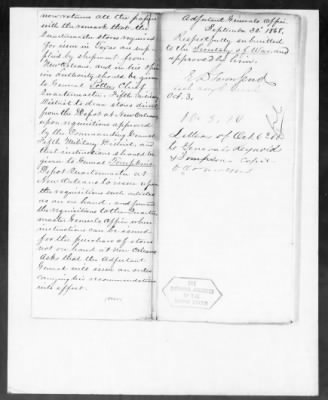 now returns all the papers
with the remark that the
Quartermaster stores required
for issue in Texas are sup-
plied by shipment from
New Orleans, and in his opin
ion authority should be given
to General Chief
Quartermaster Fifth Military
District to draw stores direct
from the Depot at New Orleans
upon requisitions approved
by the Commanding General
Fifth Military District, and
that instructions should be
given to General Tompkins
Depot Quartermaster at
New Orleans to issue upon
the requisitions such articles
as on hand, and forward
the requisitions to the Quarter-
master Generals Office where
instructions can be issued
for the purchase of stores
not on hand at New Orleans
Asks that the Adjutant
General will issue an order
carrying his recommendations
into effect.
Adjutant Generals Office
September 1868.
Respectfully submitted
to the Secretary of War and
approved by him.
E D Townsend
Oct 3.
Letters of Oct 6
to General Reynolds
THE
NATIONAL ARCHIVES
OF THE
UNITED STATES